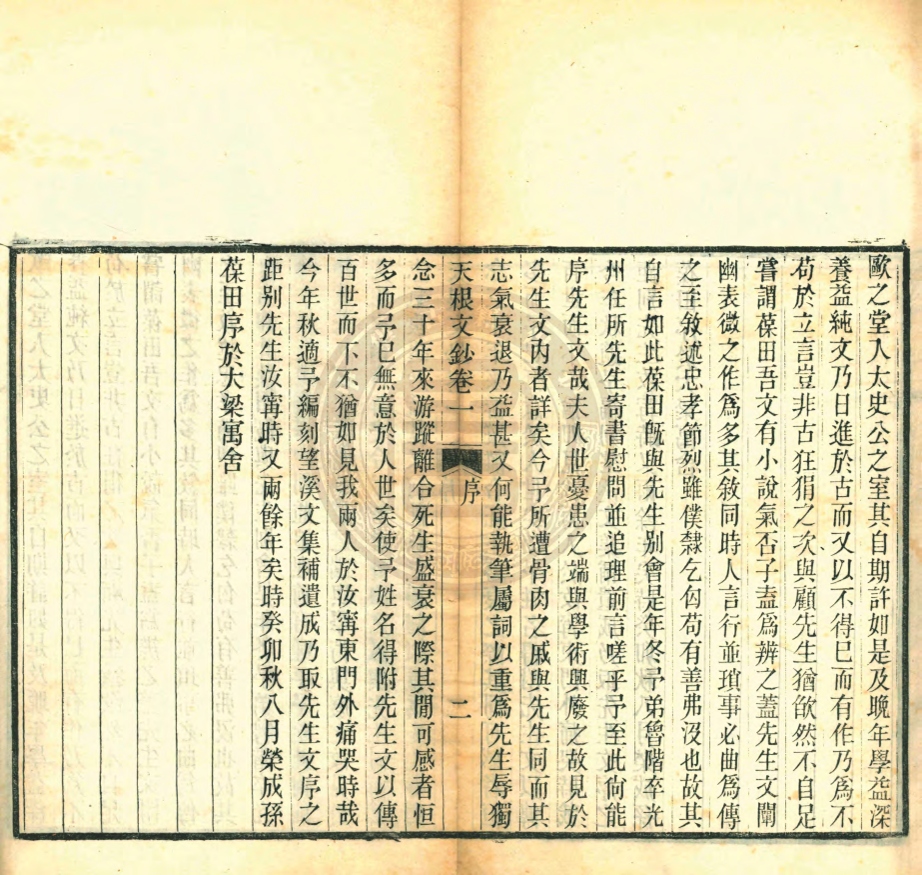 歐之堂入太史公之室其自期許如是及晚年學益深
養益純文乃日進於古而又以不得已而有作乃爲不
苟於立言豈非古狂狷之次與顧先生猶欿然不自足
嘗謂葆田吾文有小說氣否子盍爲辨之蓋先生文闡
幽表微之作爲多其敘同時人言行並瑣事必曲爲傳
之至敘述忠孝節烈雖僕隸乞匃苟有善弗沒也故其
自言如此葆田旣與先生別會是年冬予弟魯階卒光
州任所先生寄書慰問並追理前言嗟乎予至此尙能
序先生文哉夫人世憂患之端與學術興廢之故見於
先生文內者詳矣今予所遭骨肉之戚與先生同而其
志氣衰退乃益甚又何能執筆屬詞以重爲先生辱獨
天根文鈔卷一 序 二
念三十年來游蹤離合死生盛衰之際其閒可感者恒
多而予已無意於人世矣使予姓名得附先生文以傳
百世而下不猶如見我兩人於汝甯東門外痛哭時哉
今年秋適予編刻望溪文集補遺成乃取先生文序之
距別先生汝甯時又兩餘年矣時癸卯秋八月榮成孫
葆田序於大梁寓舍